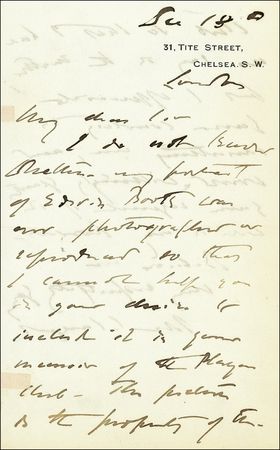 Dec 18
31, TITE STREET,
CHELSEA. S. W.
London
My dear Sir
I do not know
whether my portrait
of Edwin Booth was
ever photographed or
reproduced so that
I cannot help you
in your desire to
include it in your
memoir of the Player
Club - The picture
is the property of the